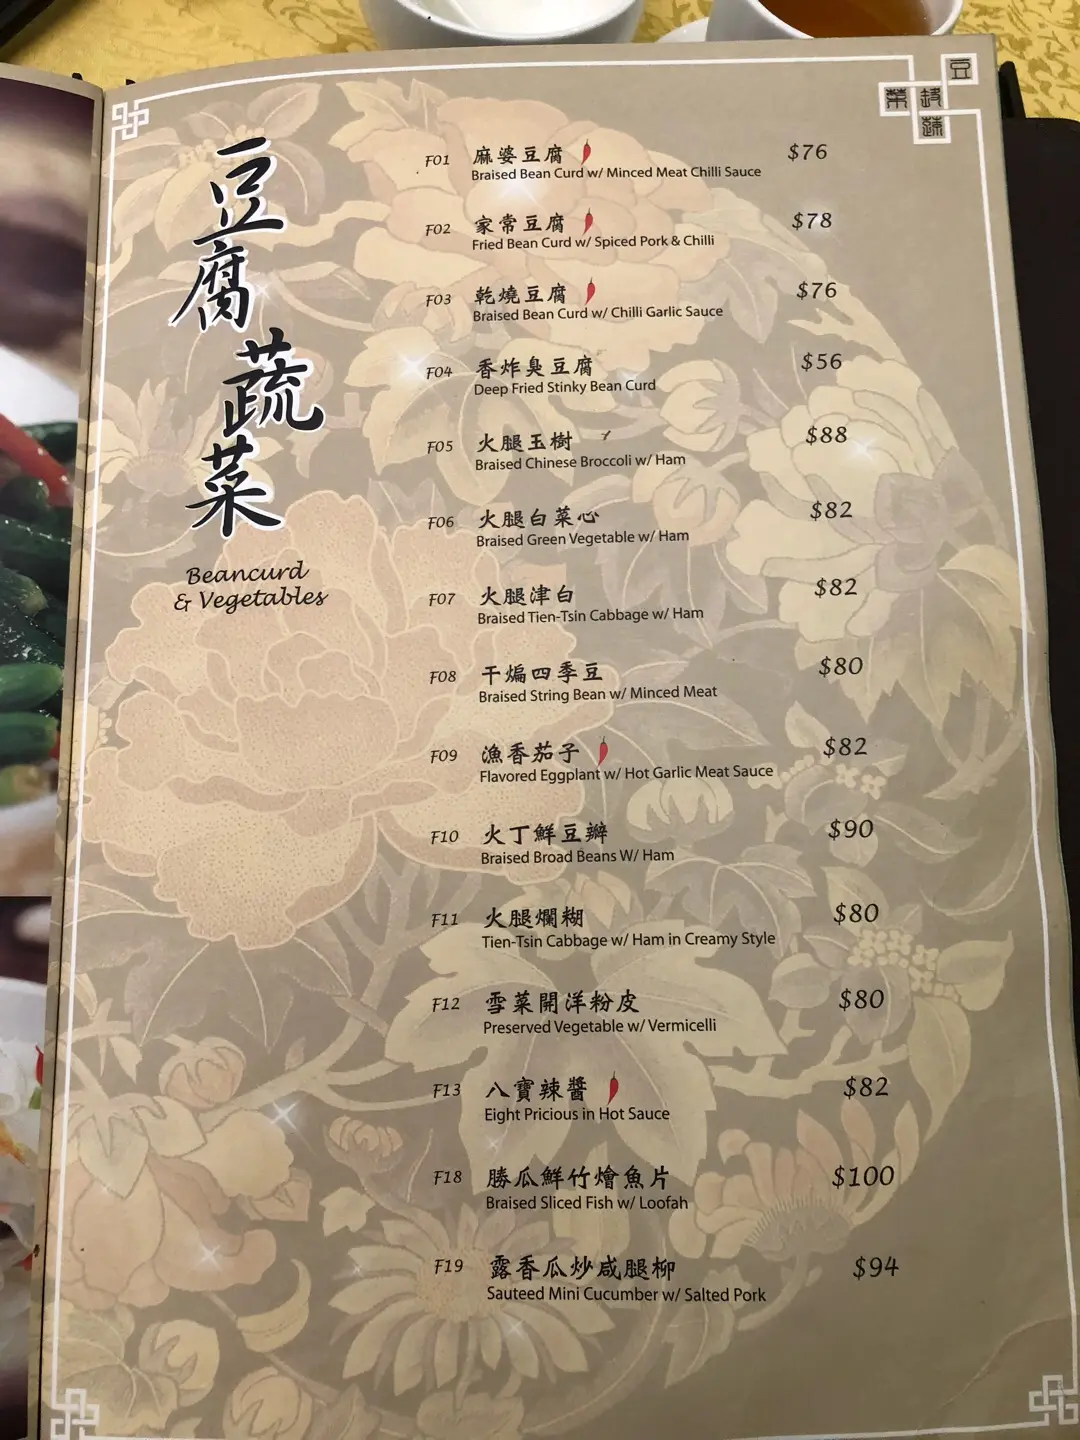 豆腐
蔬菜
Beancurd
& Vegetables
F01 麻婆豆腐 $76
Braised Bean Curd w/ Minced Meat Chilli Sauce
F02 家常豆腐 $78
Fried Bean Curd w/ Spiced Pork & Chilli
F03 乾燒豆腐 $76
Braised Bean Curd w/ Chilli Garlic Sauce
F04 香炸臭豆腐 $56
Deep Fried Stinky Bean Curd
F05 火腿玉樹 $88
Braised Chinese Broccoli w/ Ham
F06 火腿白菜心 $82
Braised Green Vegetable w/ Ham
F07 火腿津白 $82
Braised Tien-Tsin Cabbage w/ Ham
F08 干煸四季豆 $80
Braised String Bean w/ Minced Meat
F09 漁香茄子 $82
Flavored Eggplant w/ Hot Garlic Meat Sauce
F10 火丁鮮豆瓣 $90
Braised Broad Beans W/ Ham
F11 火腿爛糊 $80
Tien-Tsin Cabbage w/ Ham in Creamy Style
F12 雪菜開洋粉皮 $80
Preserved Vegetable w/ Vermicelli
F13 八寶辣醬 $82
Eight Pricious in Hot Sauce
F18 勝瓜鮮竹燴魚片 $100
Braised Sliced Fish w/ Loofah
F19 露香瓜炒咸腿柳 $94
Sauteed Mini Cucumber w/ Salted Pork